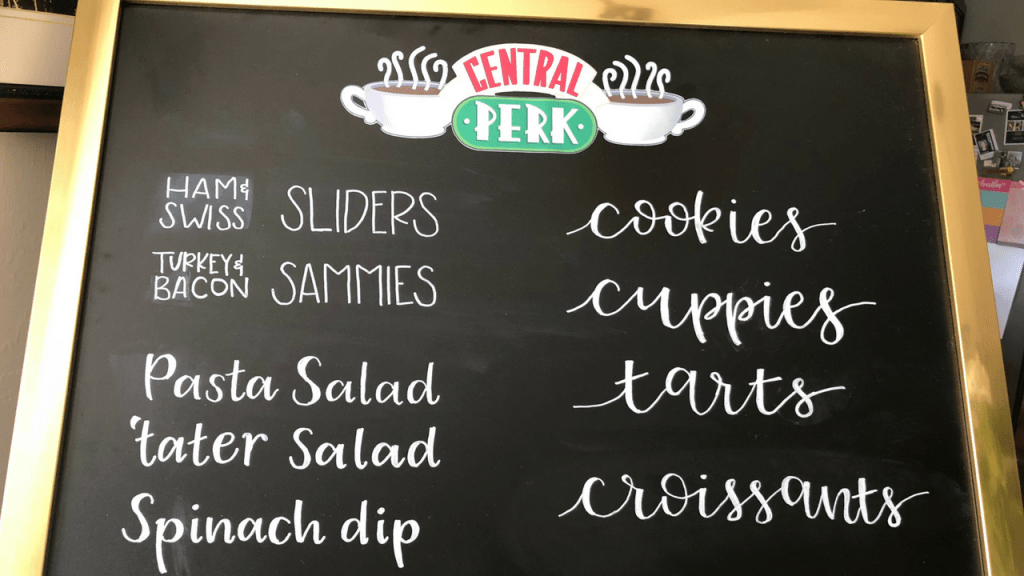 CENTRAL
·PERK·
HAM &
SWISS SLIDERS
TURKEY &
BACON SAMMIES
Pasta Salad
'tater Salad
Spinach dip
cookies
cuppies
tarts
croissants